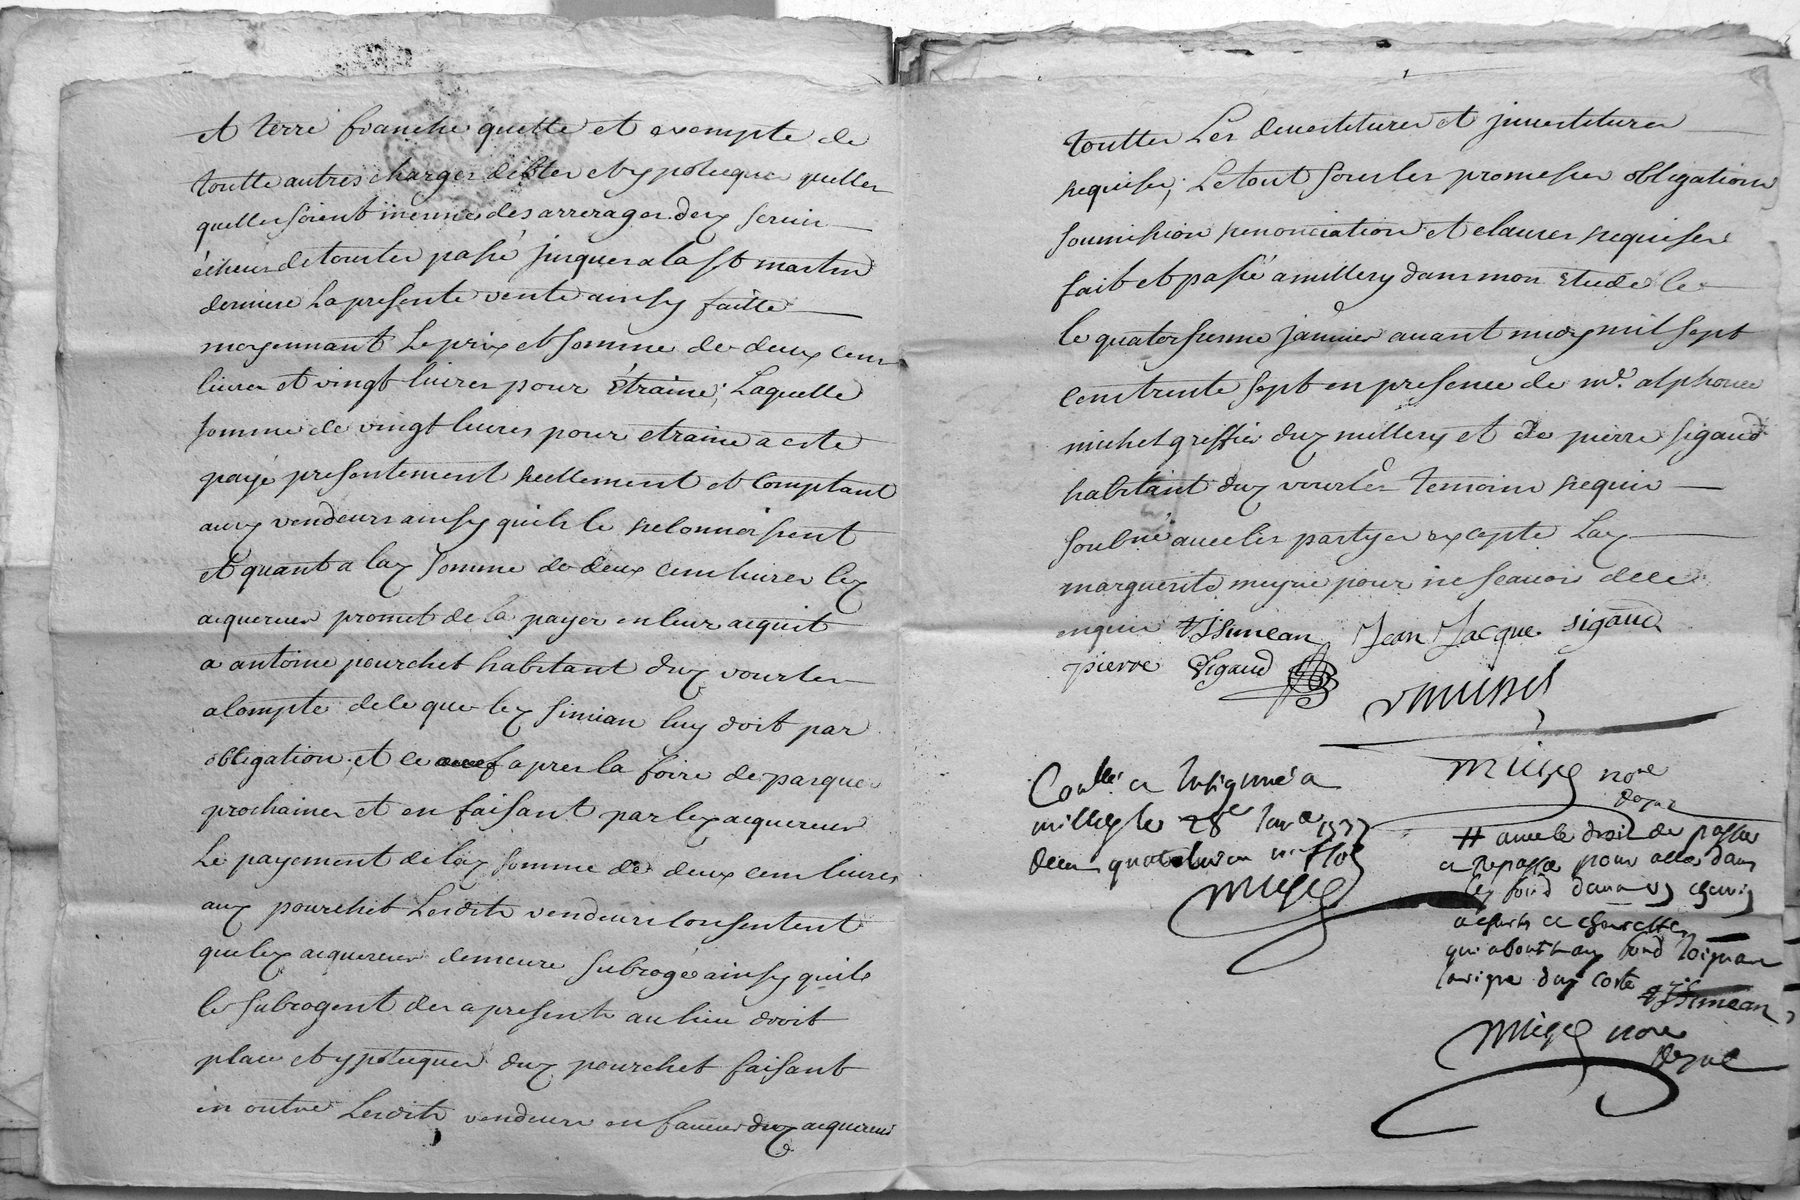 et terre franche quitte et exempte de
toutte autres charges debtes et ypotecques quelles
quelles soient mesme des arrerages dex servis
écheus de tout les passé jusques a la st martin
derniere la presente vente ainsy faitte
moyennant le prix et somme de deux cens
livres et vingt livres pour étraine; laquelle
somme de vingt livres pour etraine a esté
payé presentement reellement et comptant
aux vendeurs ainsy quils le reconnoissent
et quant a lax somme de deux cens livres lex
acquereur promet de la payer en leur acquit
a antoine pourchet habitant dux vourles
a compte de ce que lex simian luy doit par
obligation, et ce apres la foire de pasques
prochaines et en faisant par lex acquereur
le payement de lax somme de deux cens livres
aux pourchet lesdits vendeurs consentent
que lex acquereur demeure subrogé ainsy quils
le subrogent des a present au lieu droit
place et ypotecques dux pourchet faisant
en outre lesdits vendeurs en faveur dux acquereur
touttes les devestitures et jnvestitures
requises; le tout sous les promesses obligations
soumission renonciation et clauses requises
fait et passé a millery dans mon etude le
le quatorsieme janvier avant midy mil sept
cens trente sept en presence de me. alphonce
michel greffier dux millery et de pierre sigaud
habitant dux vourles temoins requis
soubné avec les partyes excepte lax
marguerite meynie pour ne scavoir de ce
enquis JSimean Jean Jacque sigaud
pierre Sigaud
Miege nore
Coallé et Insigniné a
millery le 28e Janv 1737
Miege
# avec le droit de passer
et repasser pour aller dans
lex fond dans un chemin
a chars et charettes
qui aboutit aux fond joignant
la vigne dux costé JSimean
Miege nore